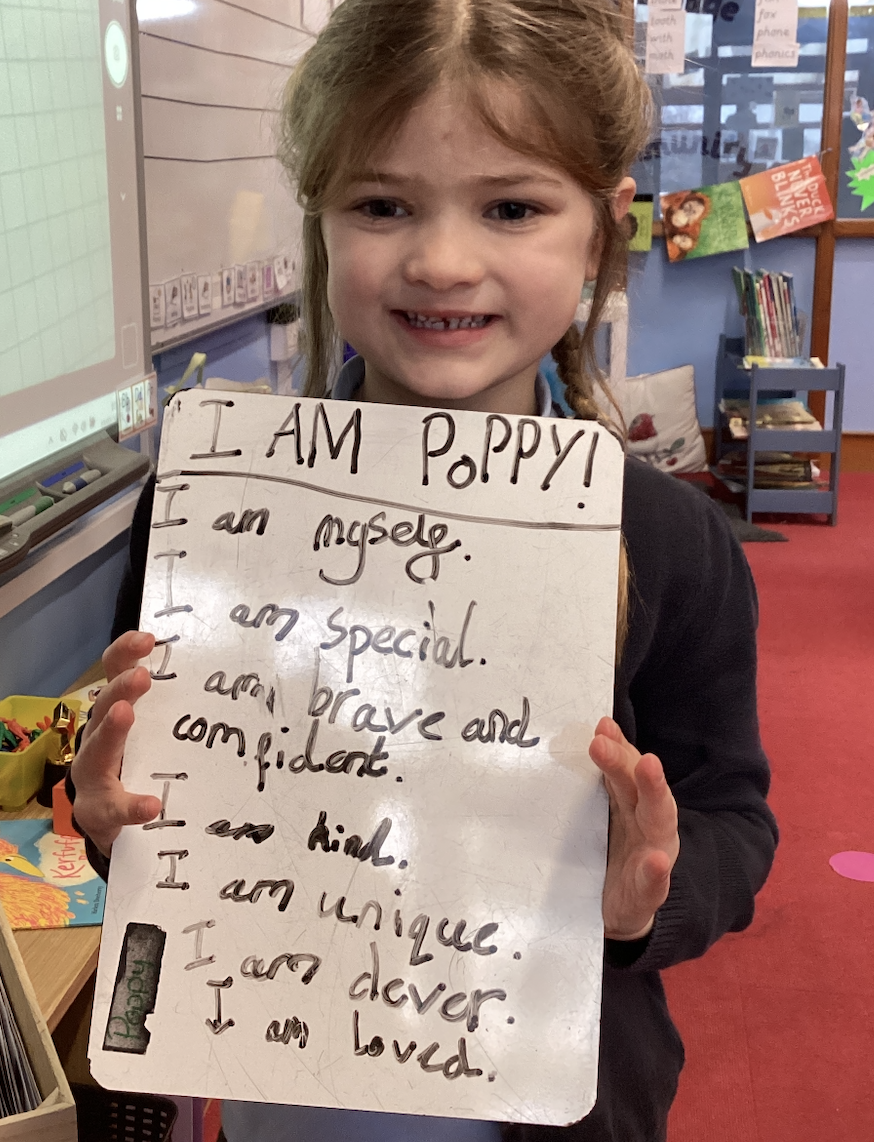 tooth
with
moth
fox
phone
phonics
THE DUCK
NEVER
BLINKS
I AM POPPY!
I am myself.
I am special.
I am brave and
confident.
I am kind.
I am unique.
I am clever.
I am loved.
Poppy